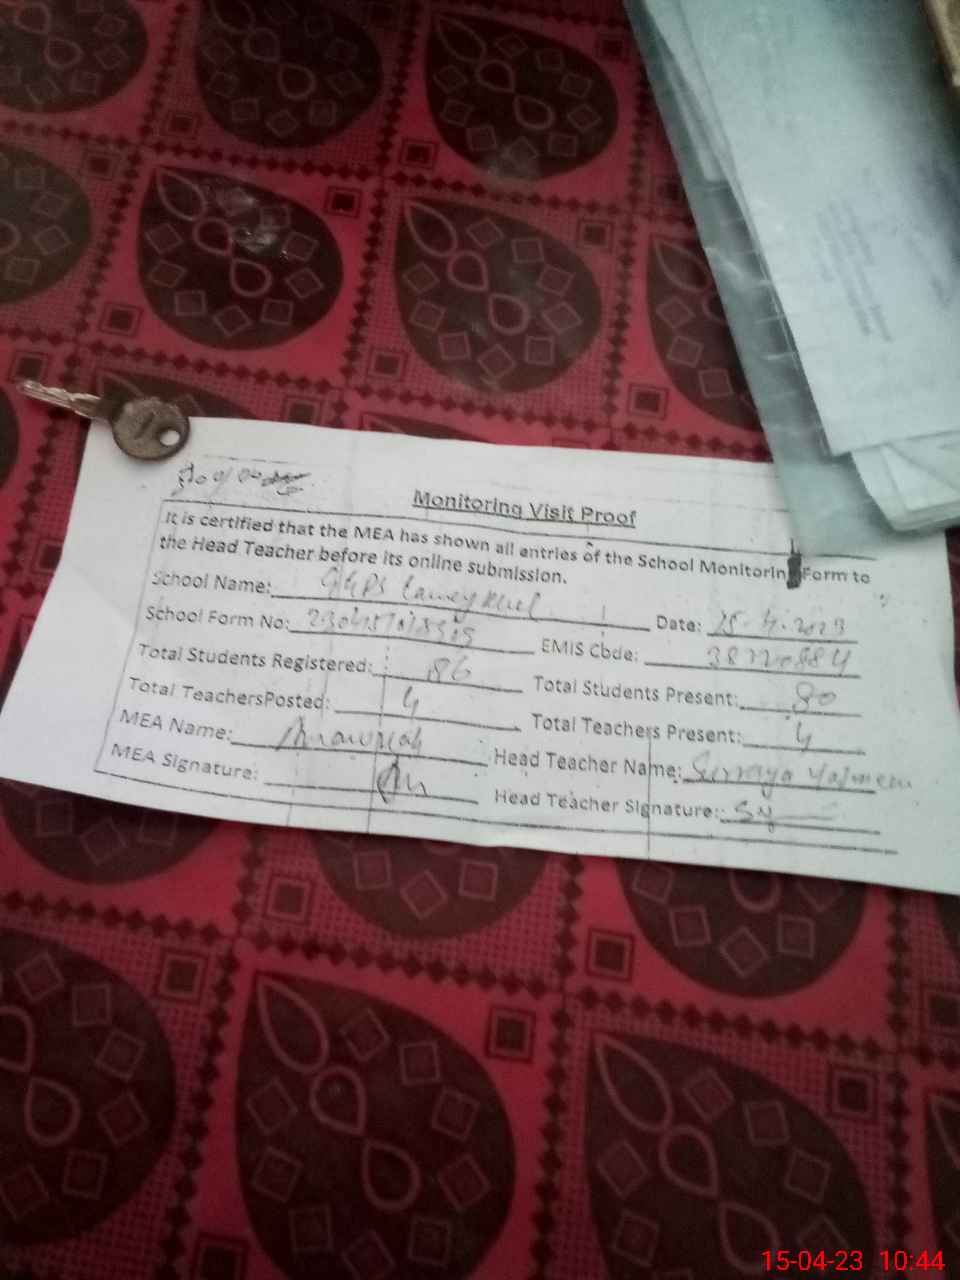 Monitoring Visit Proof
It is certified that the MEA has shown all entries of the School Monitoring Form to
the Head Teacher before its online submission.
School Name: GGPS Date: 15-4-2023
School Form No: EMIS Code:
Total Students Registered: 86 Total Students Present: 80
Total TeachersPosted: 4 Total Teachers Present: 4
MEA Name: Head Teacher Name: Surraya Yasmeen
MEA Signature: Head Teacher Signature: Sy
15-04-23 10:44